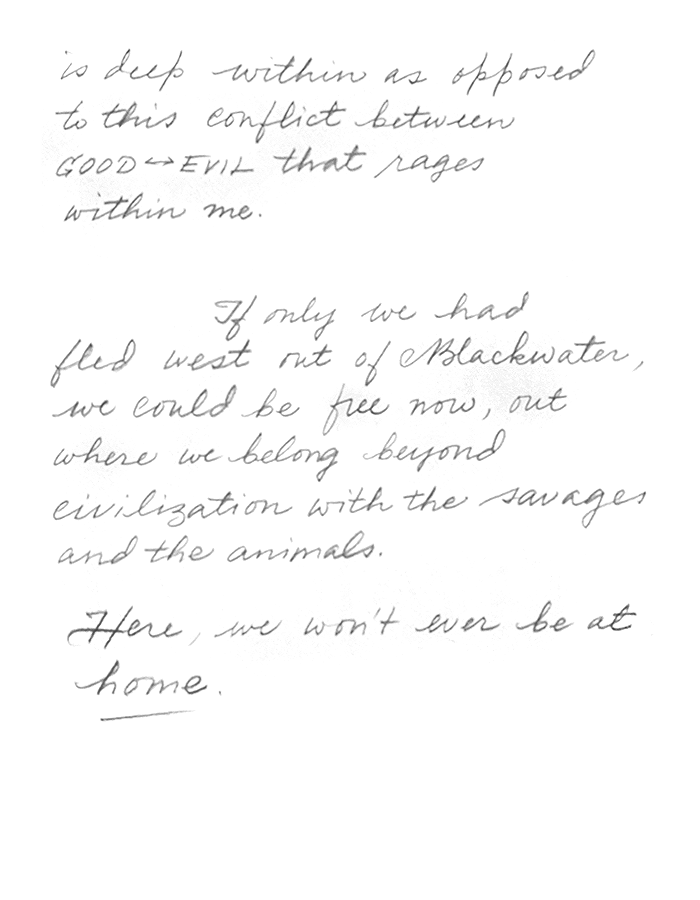 is deep within as opposed
to this conflict between
GOOD↔EVIL that rages
within me.
If only we had
fled west out of Blackwater,
we could be free now, out
where we belong beyond
civilization with the savages
and the animals.
Here, we won't ever be at
home.